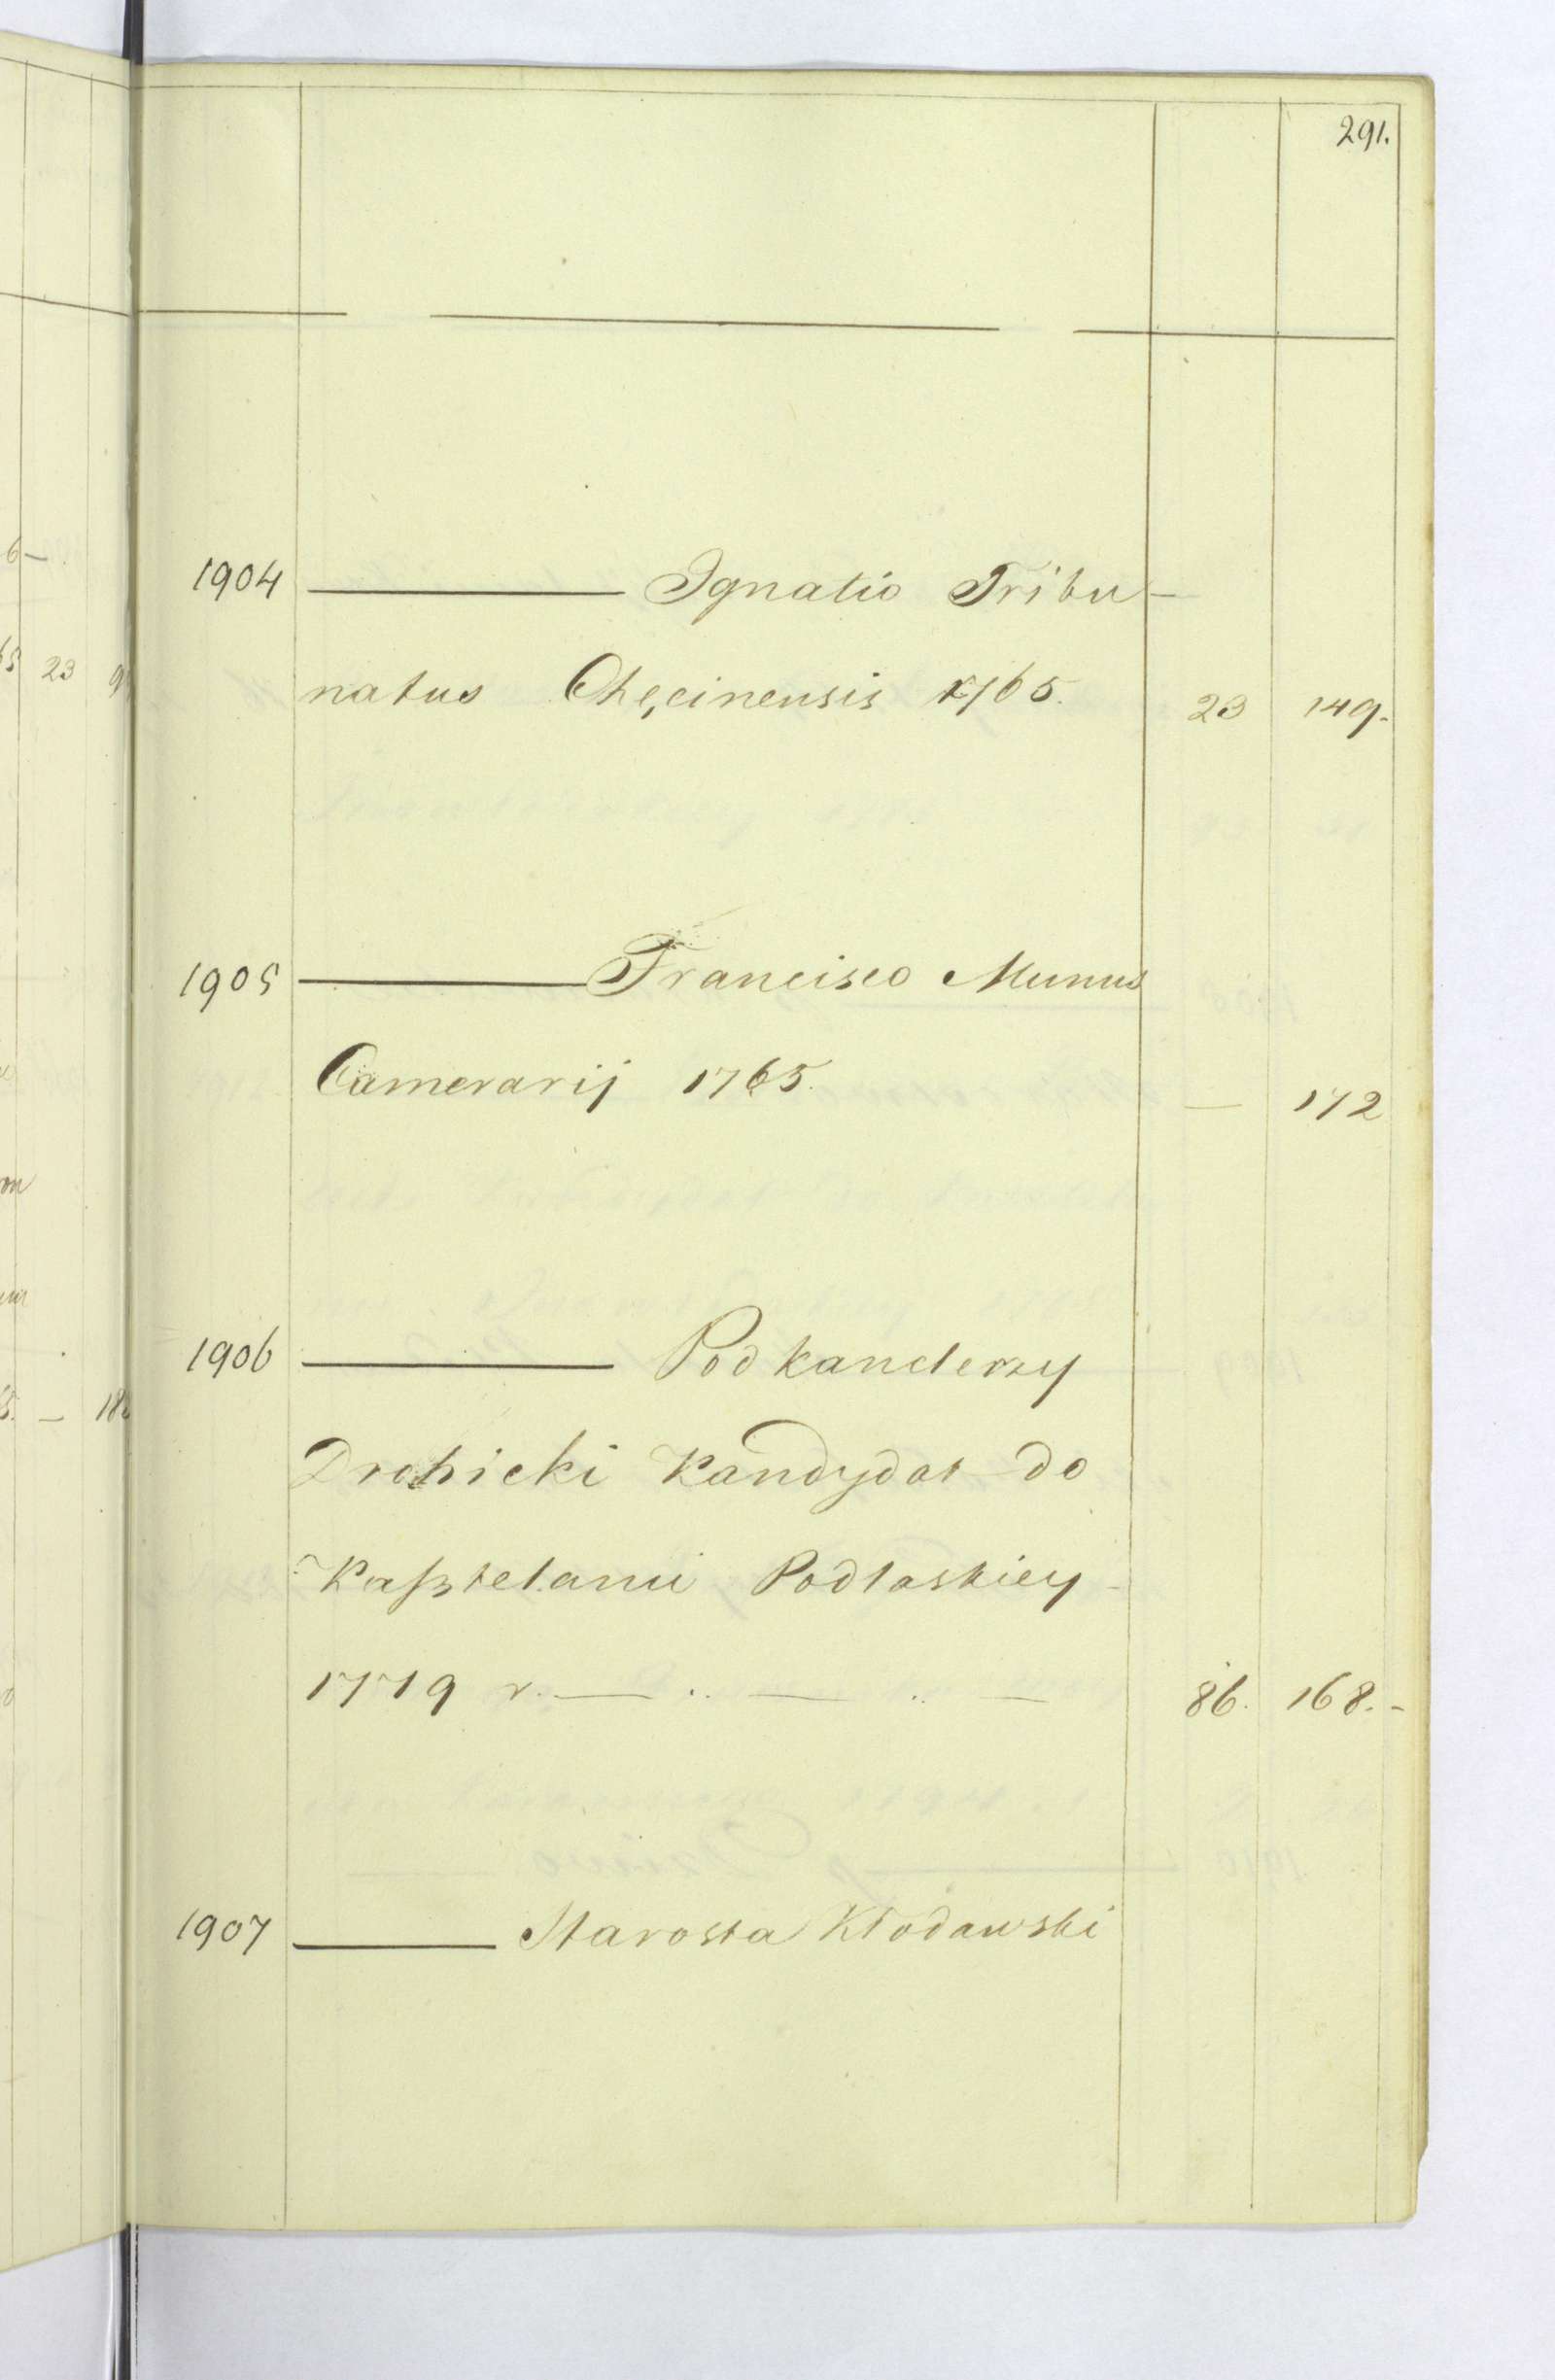 291.
1904 ——— Ignatio Tribu-
natus Chęcinensis 1765. 23 149.
1905 ——— Francisco Munus
Camerarij 1765. — 172
1906 ——— Podkanclerzy
Drohicki Kandydat do
Kaſztelanii Podlaskiey
1779 r. — .. — .. — 86. 168.-
1907 ——— Starosta Kłodawski